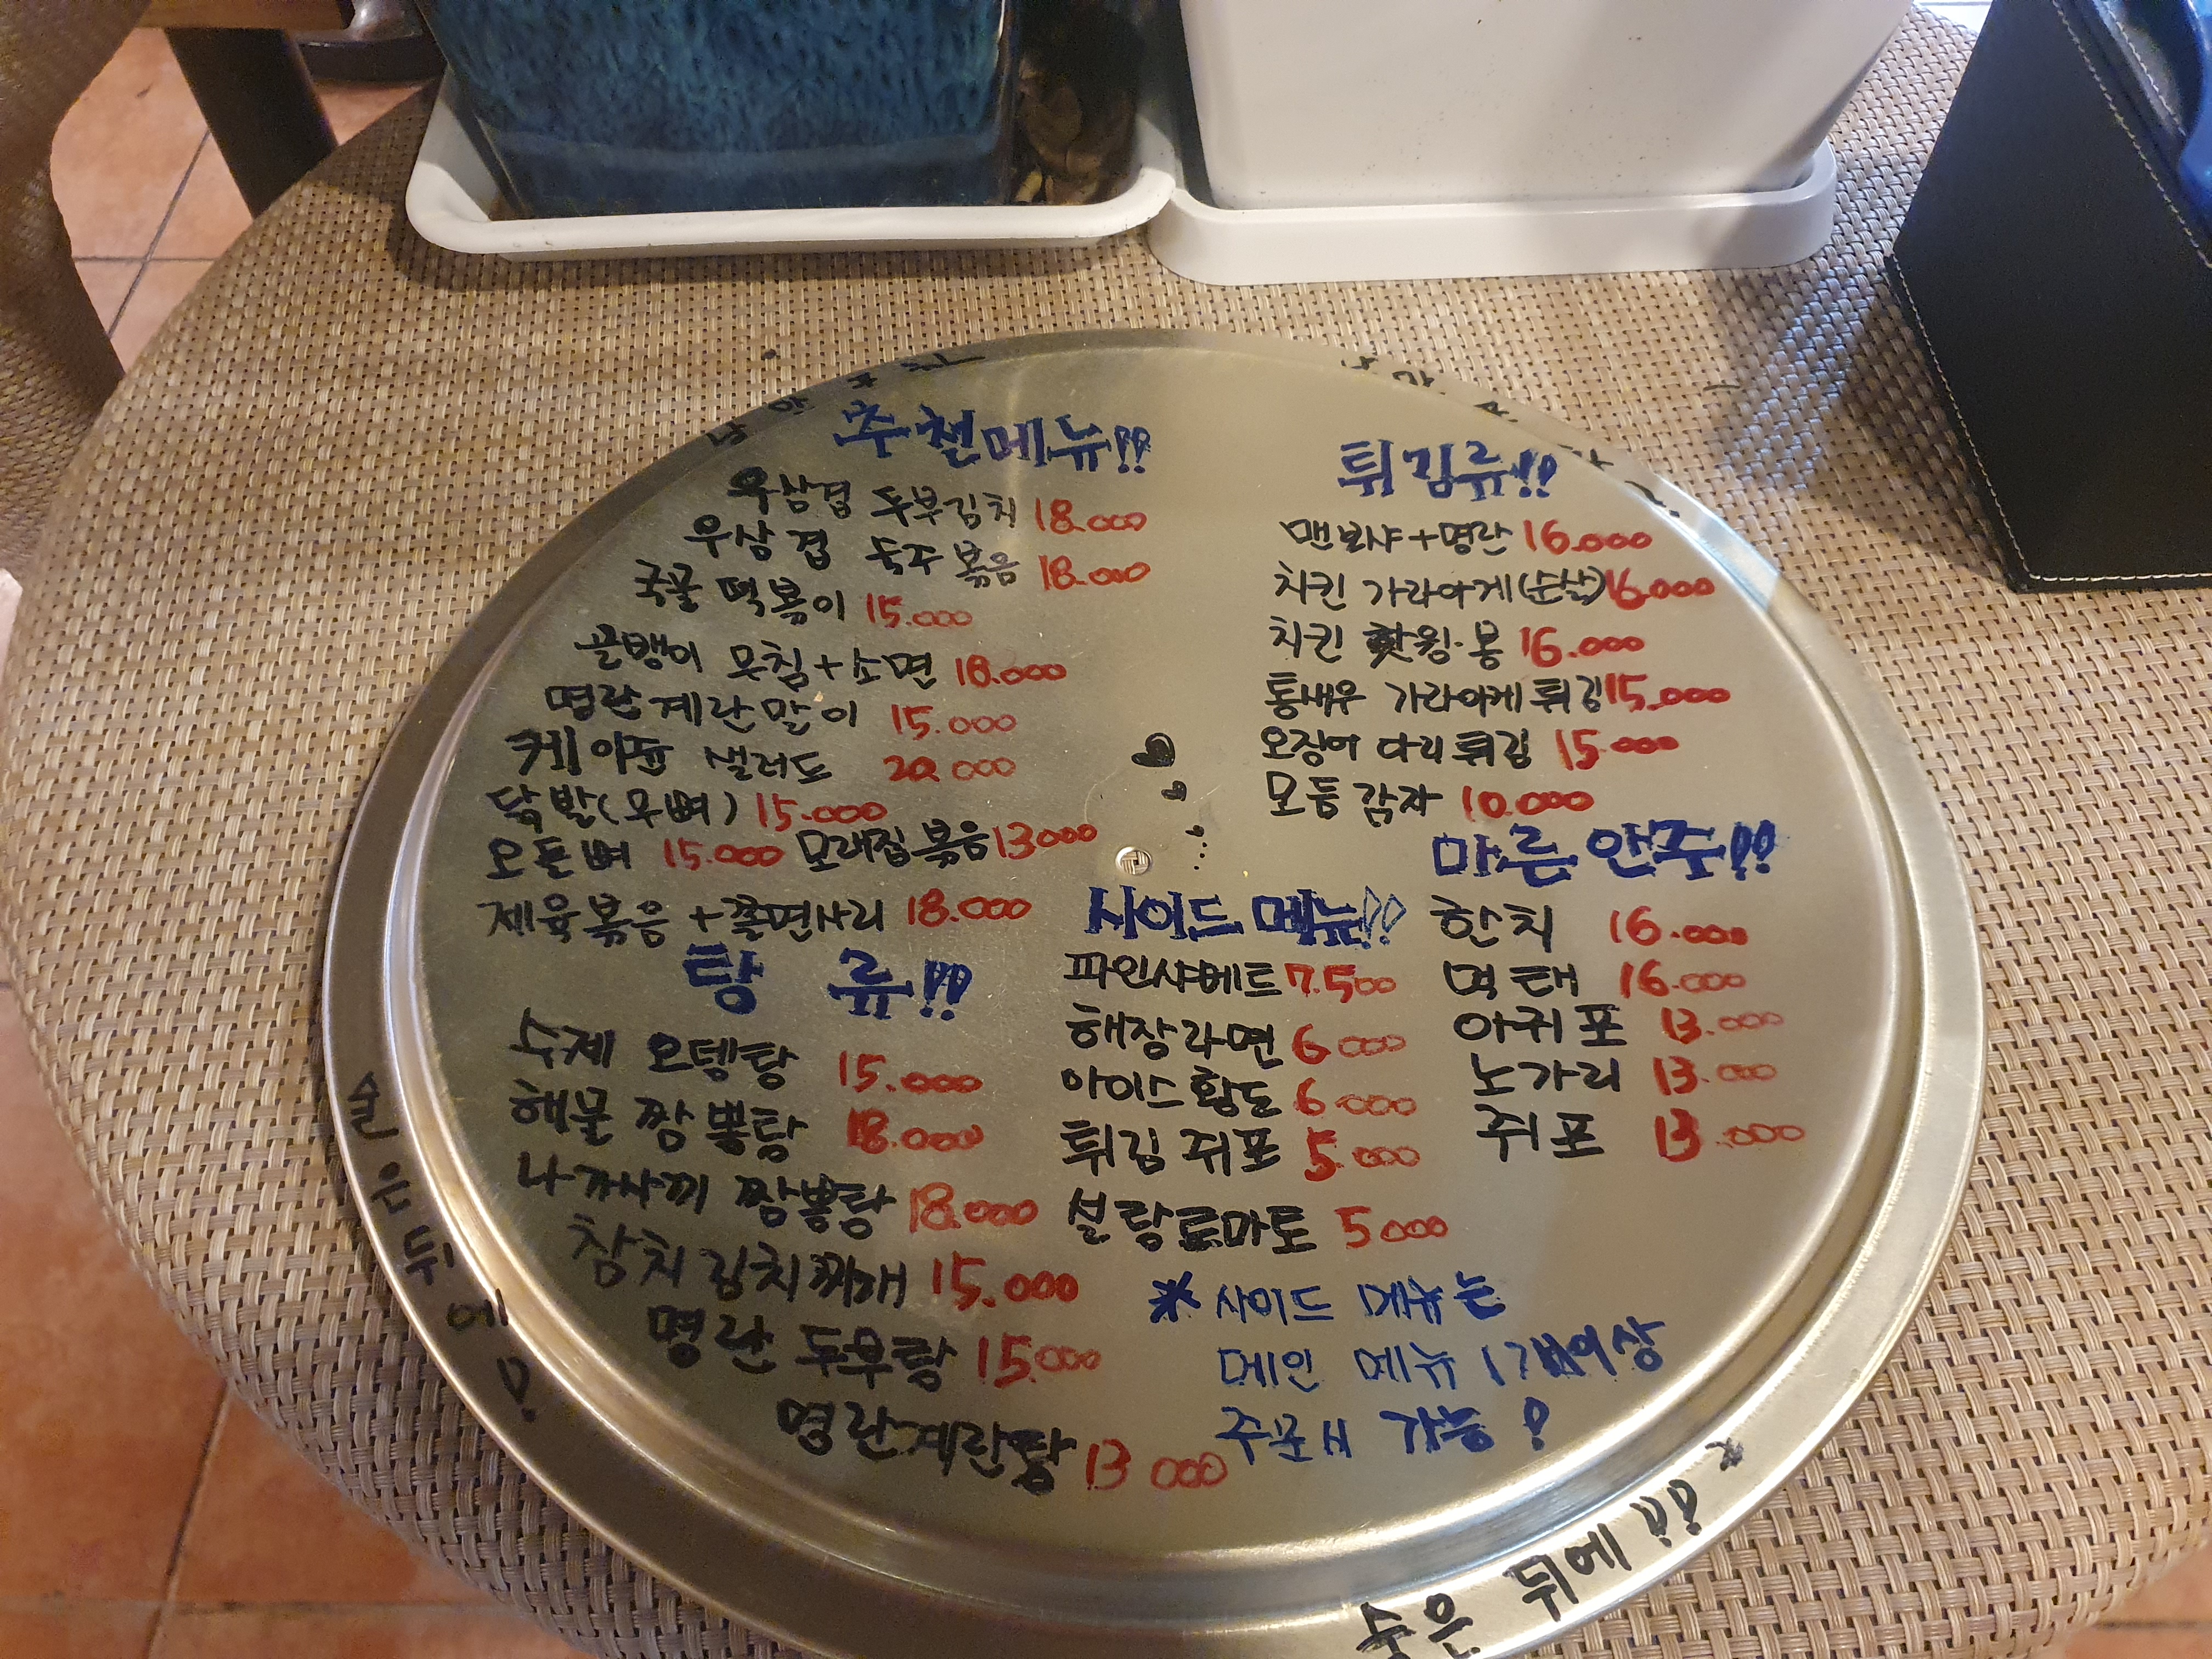 추천메뉴!!
우삼겹 두부김치 18.000
우삼겹 숙주볶음 18.000
국물 떡볶이 15.000
골뱅이 무침+소면 18.000
명란계란말이 15.000
케이준 샐러드 20.000
닭발(무뼈) 15.000
오돌뼈 15.000 모래집볶음 13000
제육볶음+쫄면사리 18.000
탕 류!!
수제 오뎅탕 15.000
해물 짬뽕탕 18.000
나가사끼 짬뽕탕 18.000
참치김치찌개 15.000
명란 두부탕 15.000
명란계란탕 13 000
튀김류!!
맨보샤+명란 16.000
치킨 가라아게(순살) 16.000
치킨 핫윙·봉 16.000
통새우 가라아게튀김 15.000
오징어 다리튀김 15.000
모듬감자 10.000
마른안주!!
한치 16.000
먹태 16.000
아귀포 13.000
노가리 13.000
쥐포 13.000
사이드메뉴!!
파인샤베트 7.500
해장라면 6000
아이스황도 6.000
튀김쥐포 5.000
설탕토마토 5000
* 사이드 메뉴는
메인 메뉴 1개이상
주문시 가능!
술은 뒤에!
술은 뒤에!!*